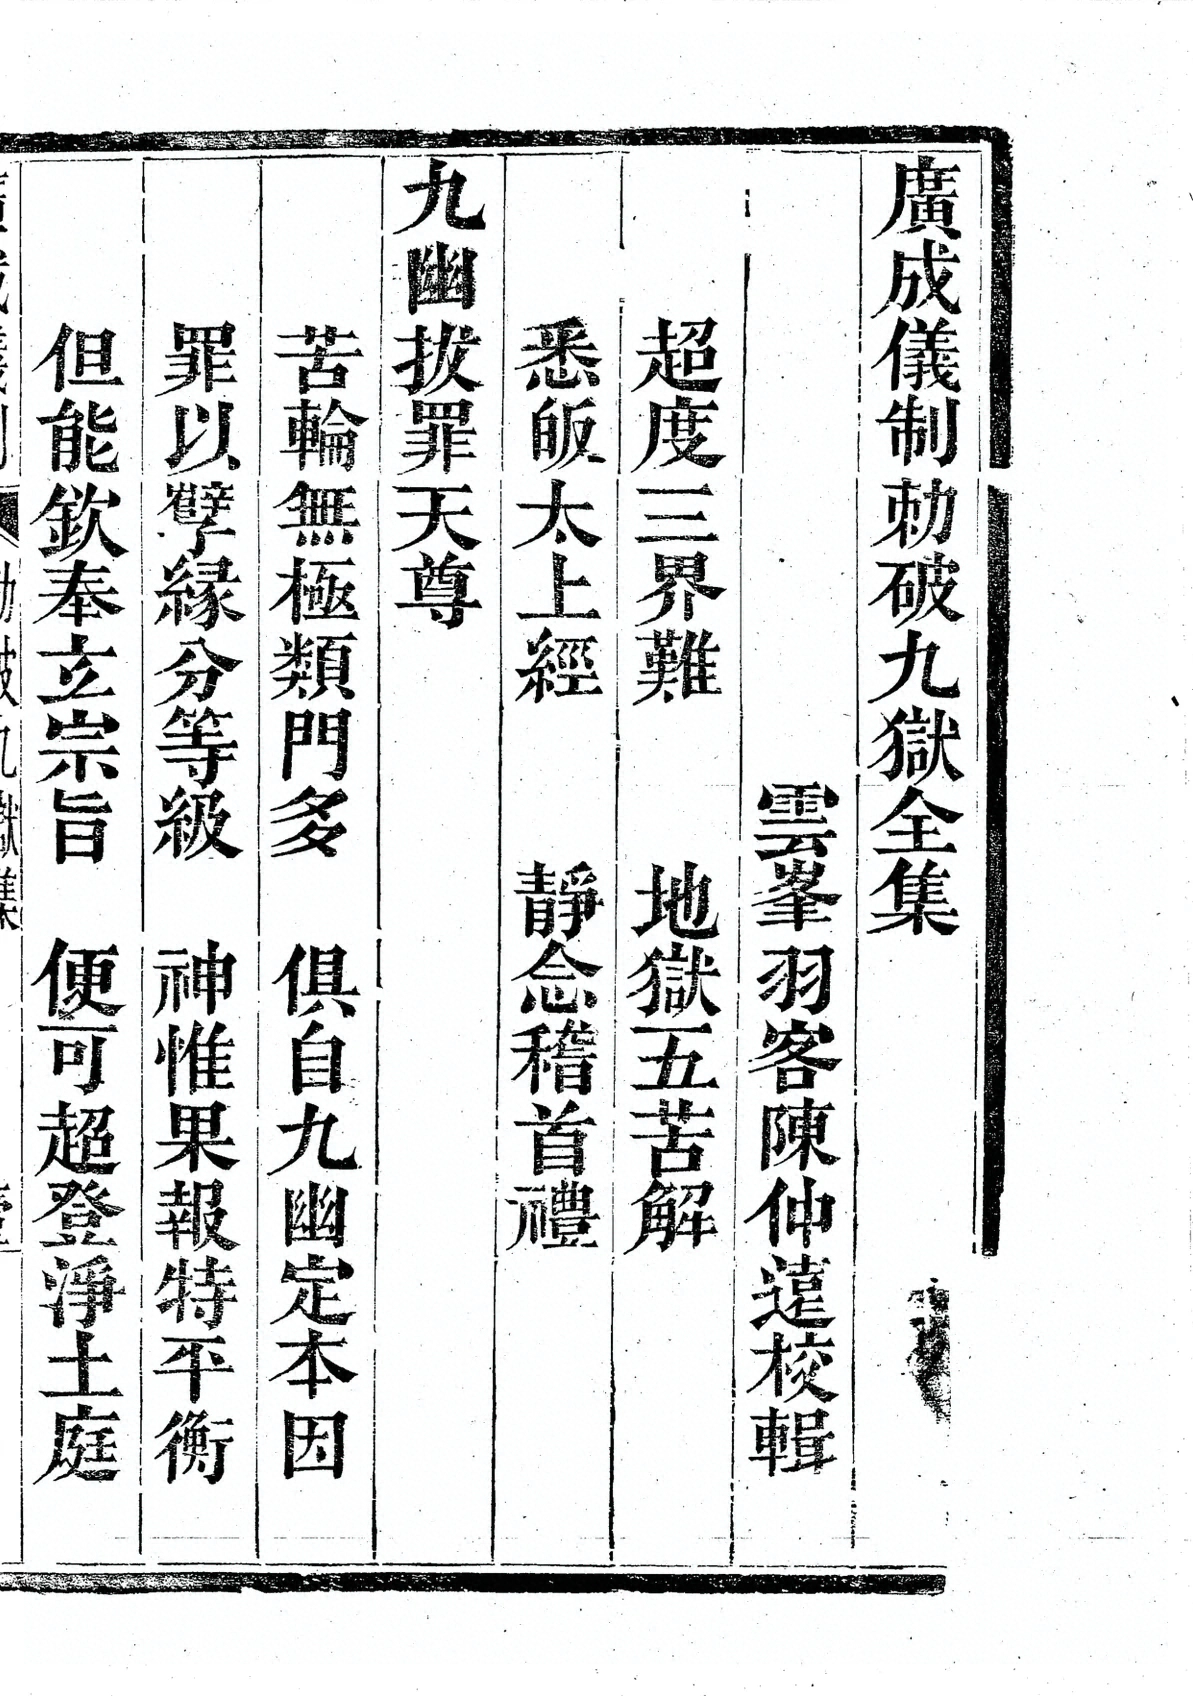 廣成儀制勅破九獄全集
雲峯羽客陳仲遠校輯
超度三界難 地獄五苦解
悉皈太上經 靜念稽首禮
九幽拔罪天尊
苦輪無極類門多 俱自九幽定本因
罪以孽緣分等級 神惟果報特平衡
但能欽奉立宗旨 便可超登淨土庭